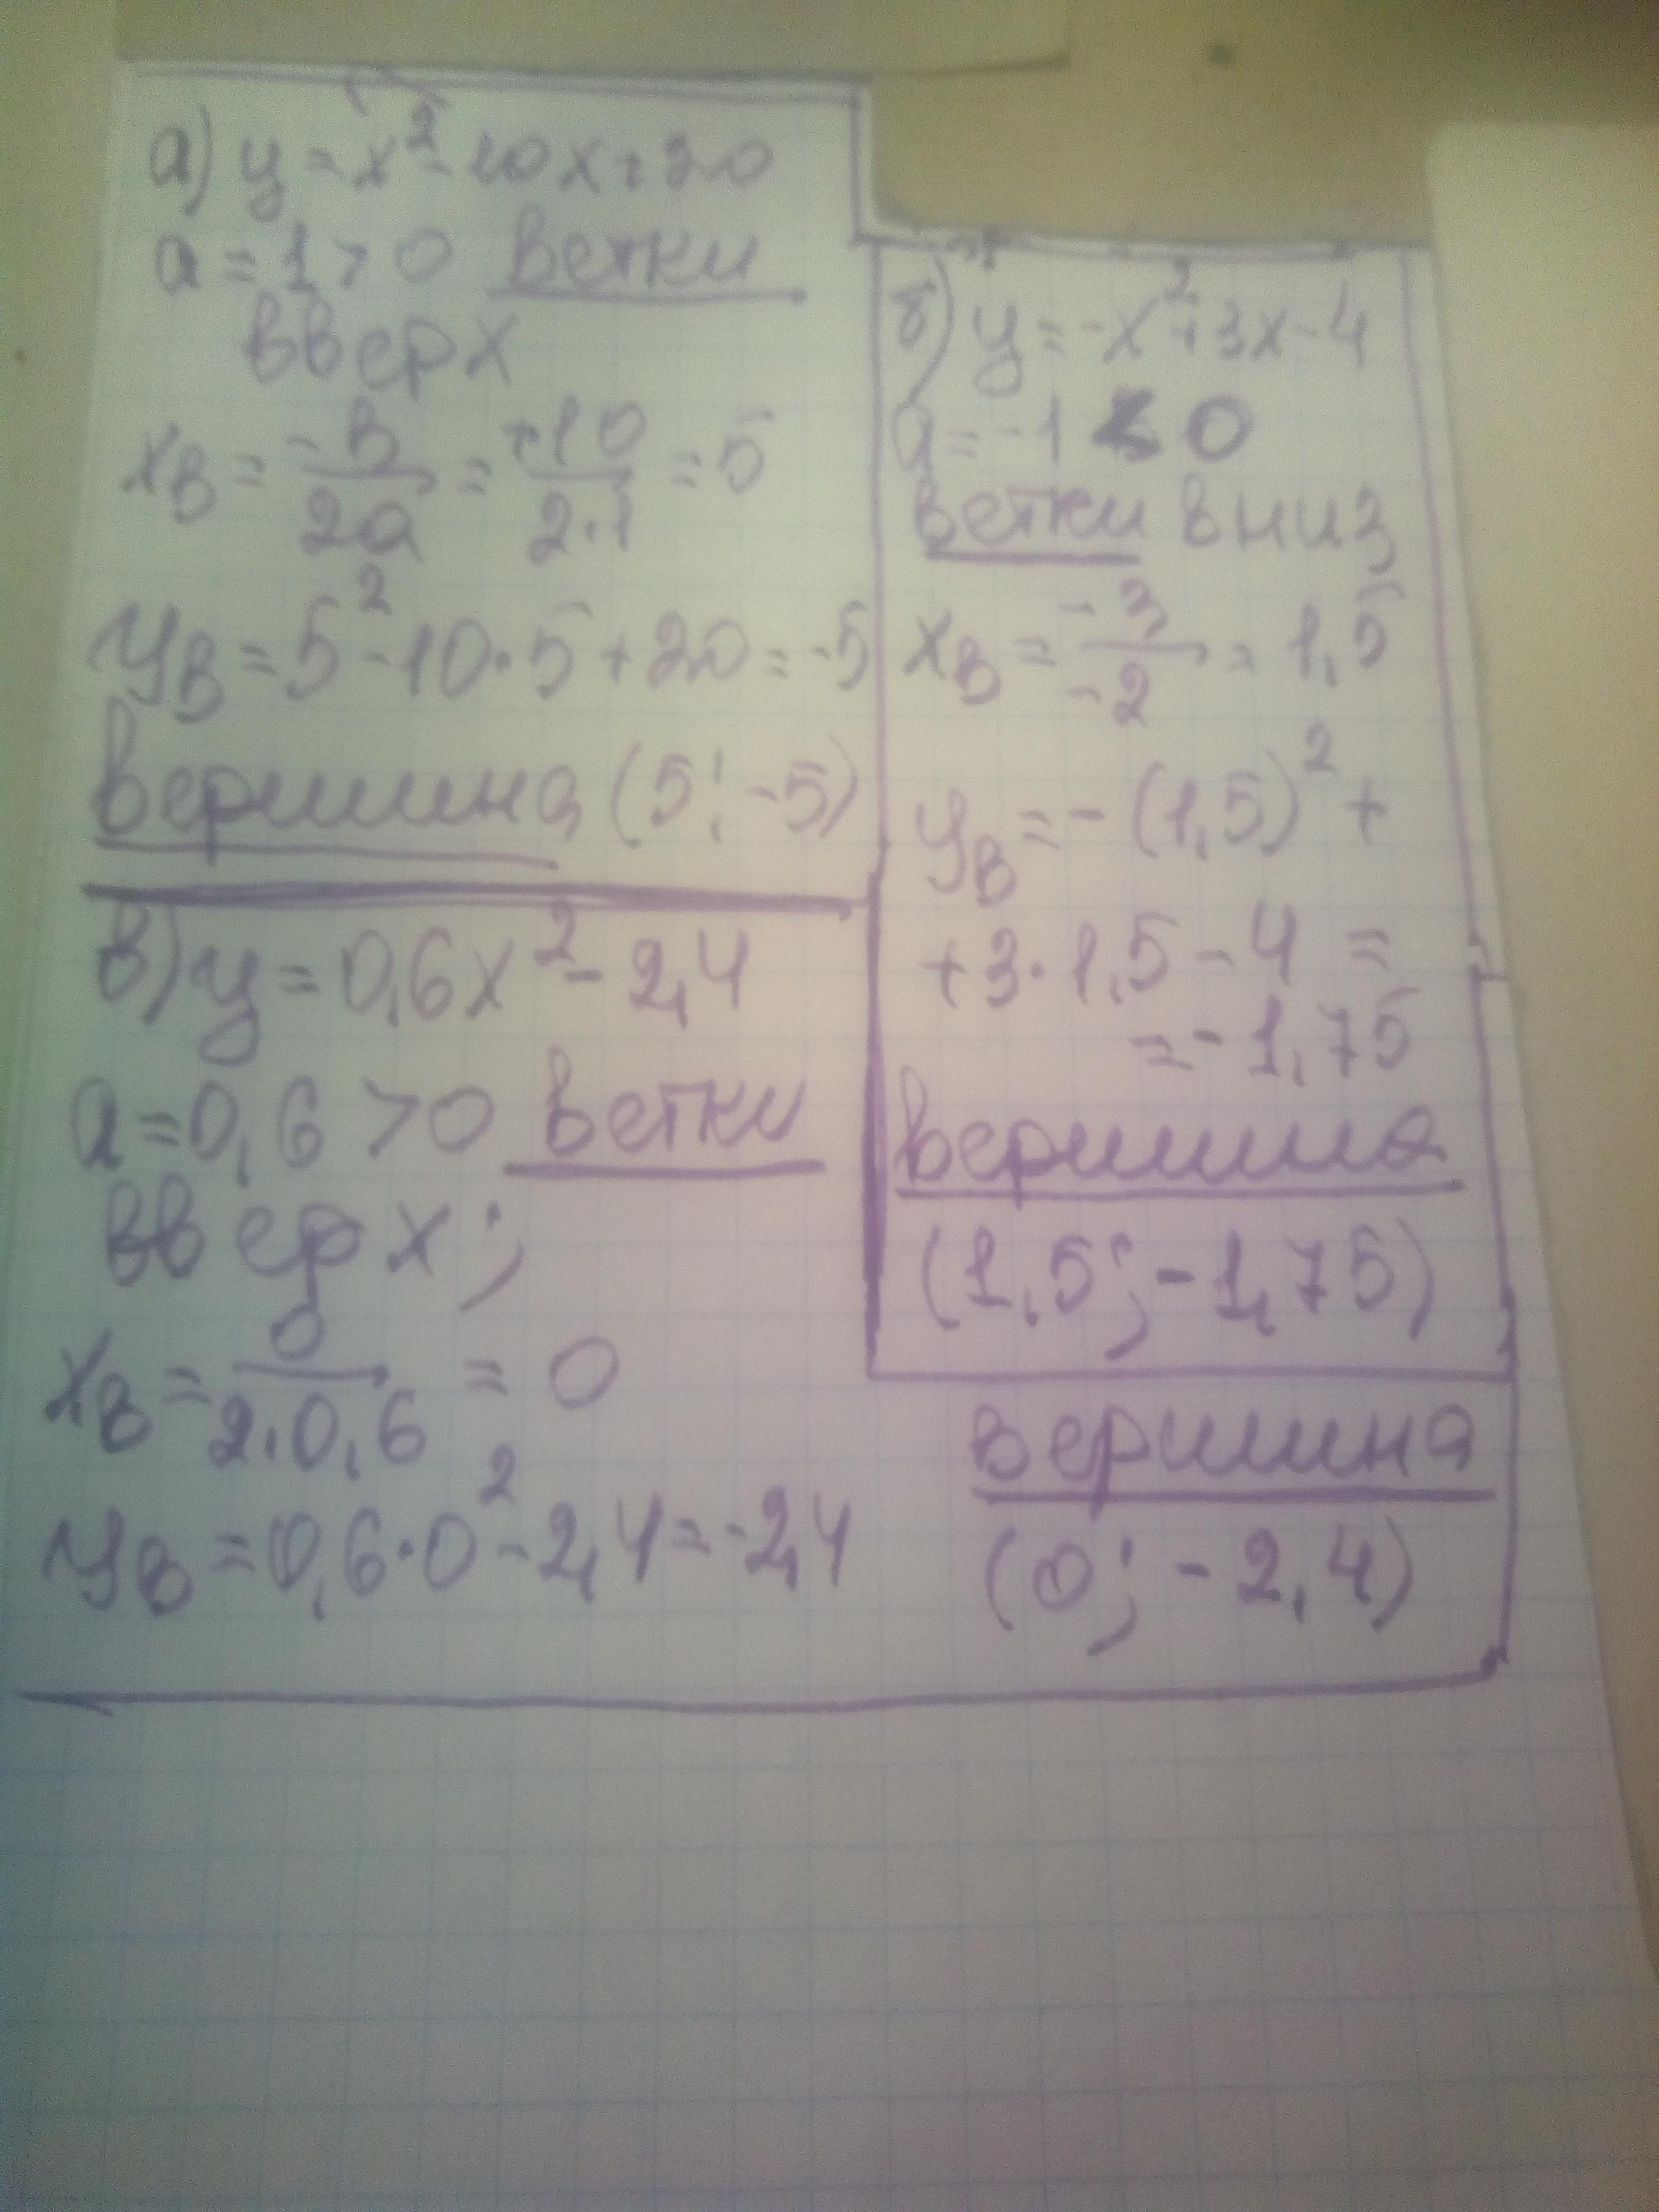 а) y = x² - 10x + 20
a = 1 > 0 ветки
вверх
xв = -в/2a = +10/2·1 = 5
yв = 5² - 10·5 + 20 = -5
вершина (5; -5)
б) y = -x² + 3x - 4
a = -1 < 0
ветки вниз
xв = -3/-2 = 1,5
yв = -(1,5)² +
+ 3·1,5 - 4 =
= -1,75
вершина
(1,5; -1,75)
в) y = 0,6x² - 2,4
a = 0,6 > 0 ветки
вверх;
xв = 0/2·0,6 = 0
yв = 0,6·0² - 2,4 = -2,4
вершина
(0; -2,4)